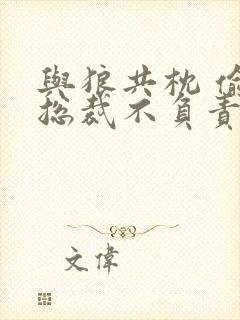 與狼共枕 偷
總裁不負責
文偉